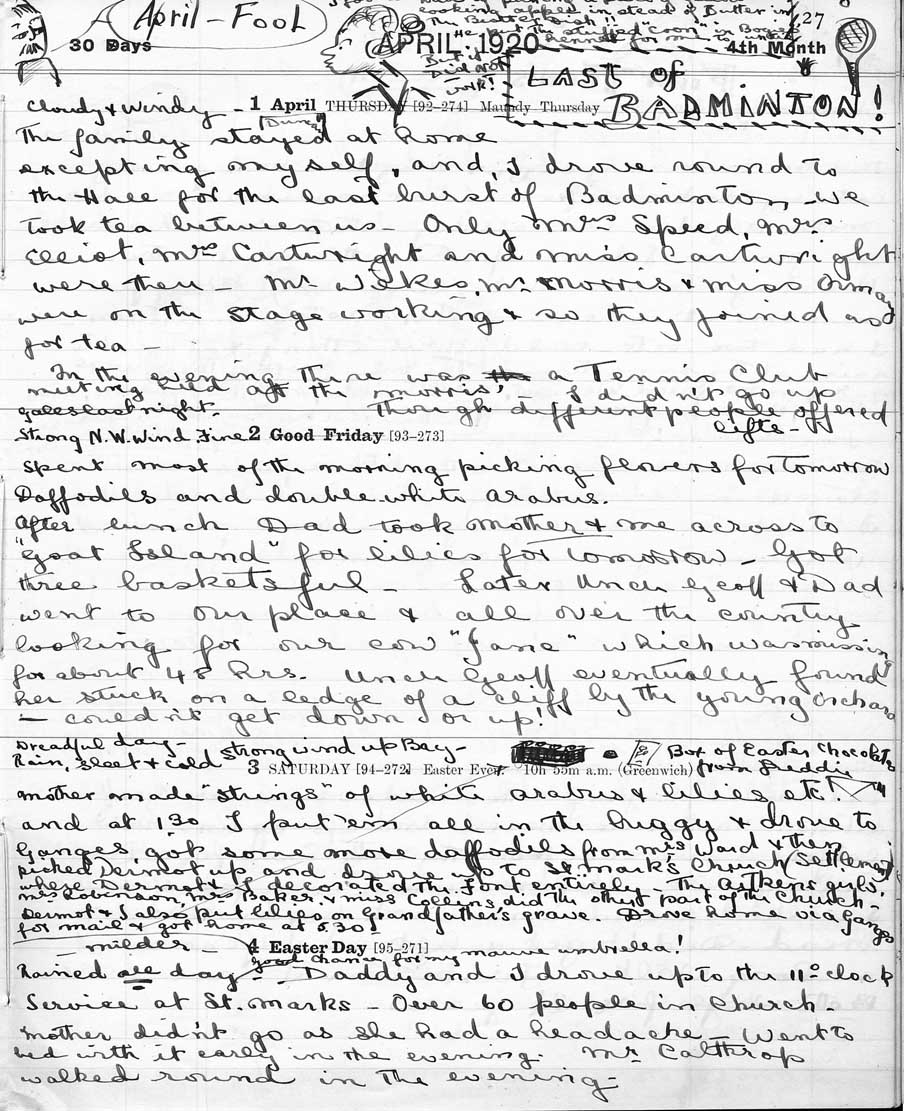 April - Fool
27
30 Days
APRIL, 1920
4th Month
The Butter Dish !!
But it
Did not
work!
LAST OF
BADMINTON!
Cloudy & Windy -
1 April THURSDAY [92-274] Maundy Thursday
The family stayed at home
excepting myself, and, I drove round to
the Hall for the last burst of Badminton - we
took tea between us - Only Mrs Speed, Mrs
Elliot, Mrs Cartwright and Miss Cartwright
were there - Mr Wakes, Mr Morris & Miss
were on the stage working & so they joined us
for tea -
In the evening there was a Tennis Club
meeting held at the Morris' - I didn't go up
though different people offered
lifts -
gales last night.
Strong N.W. Wind Fine
2 Good Friday [93-273]
Spent most of the morning picking flowers for tomorrow
Daffodils and double white arabus.
After lunch Dad took Mother & me across to
"Goat Island" for lilies for tomorrow - Got
three baskets full - Later Uncle Geoff & Dad
went to our place & all over the country
looking for our cow "Jane" which was missing
for about 48 hrs. Uncle Geoff eventually found
her stuck on a ledge of a cliff by the young orchard
- couldn't get down or up!
Dreadful day -
Rain, sleet & cold
strong wind up Bay -
Box of Easter Chocolates
from Freddie
3 SATURDAY [94-272] Easter Even. 10h 55m a.m. (Greenwich)
Mother made "strings" of white arabus & lilies etc.
and at 1 30 I put 'em all in the buggy & drove to
Ganges, got some more daffodils from Mrs Ward & then
picked Dermot up and drove up to St. Mark's Church (Settlement)
where Dermot & I decorated the Font entirely - The Aitkens girls'
Mrs Robinson, Mrs Baker, & Miss Collins did the other part of the Church -
Dermot & I also put lilies on Grandfather's grave. Drove home via Ganges
for mail & got home at 5 30!
- milder
4 Easter Day [95-271]
good chance for my mauve umbrella!
Rained all day - Daddy and I drove up to the 11 o'clock
Service at St. Marks - Over 60 people in Church.
Mother didn't go as she had a headache. Went to
bed with it early in the evening. Mr Calthrop
walked round in the evening -